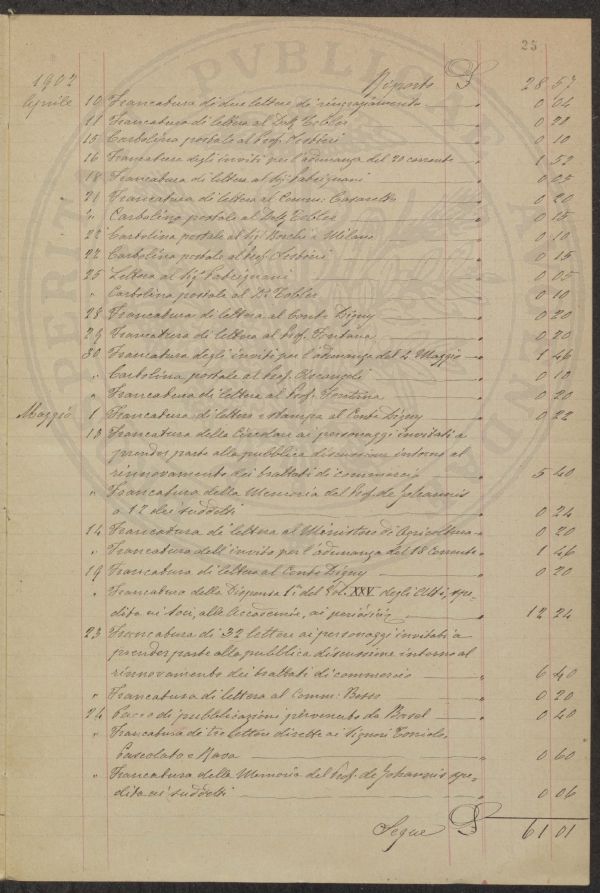 25
1902 Riporto £ 28 57
Aprile 10 Francatura di due lettere di ringraziamento " 0 04
11 Francatura di lettera al Dott. Tobler " 0 20
15 Cartolina postale al Prof. " 0 10
16 Francatura degli inviti per l'adunanza del 20 corrente " 1 52
18 Francatura di lettera al Sig. " 0 05
21 Francatura di lettera al Comm. " 0 20
" Cartolina postale al Dott. Tobler " 0 15
22 Cartolina postale al Sig. Milano " 0 10
22 Cartolina postale al Prof. " 0 15
25 Lettera al Sig. " 0 05
" Cartolina postale al Dr Tobler " 0 10
28 Francatura di lettera al Conte Digny " 0 20
29 Francatura di lettera al Prof. Fontana " 0 20
30 Francatura degli inviti per l'adunanza del 4 Maggio " 1 46
" Cartolina postale al Prof. Arcangeli " 0 10
" Francatura di lettera al Prof. Fontana " 0 20
Maggio 1 Francatura di lettera e stampa al Conte Digny " 0 22
13 Francatura delle Circolari ai personaggi invitati a
prender parte alla pubblica discussione intorno al
rinnovamento dei trattati di commercio " 5 40
" Francatura della Memoria del Prof. de Johannis
a 12 dei suddetti " 0 24
14 Francatura di lettera al Ministero di Agricoltura " 0 20
" Francatura dell'invito per l'adunanza del 18 Corrente " 1 46
19 Francatura di lettera al Conte Digny " 0 20
" Francatura della Dispensa 1ª del Vol. XXV degli Atti, spe-
dita ai soci, alle Accademie, ai periodici " 12 24
23 Francatura di 32 lettere ai personaggi invitati a
prender parte alla pubblica discussione intorno al
rinnovamento dei trattati di commercio " 6 40
" Francatura di lettera al Comm: " 0 20
24 Pacco di pubblicazioni pervenuto da Basel " 0 40
" Francatura di tre lettere dirette ai Signori
Pascolato e Rava " 0 60
" Francatura della Memoria del Prof. de Johannis spe-
dita ai suddetti " 0 06
Segue £ 61 01